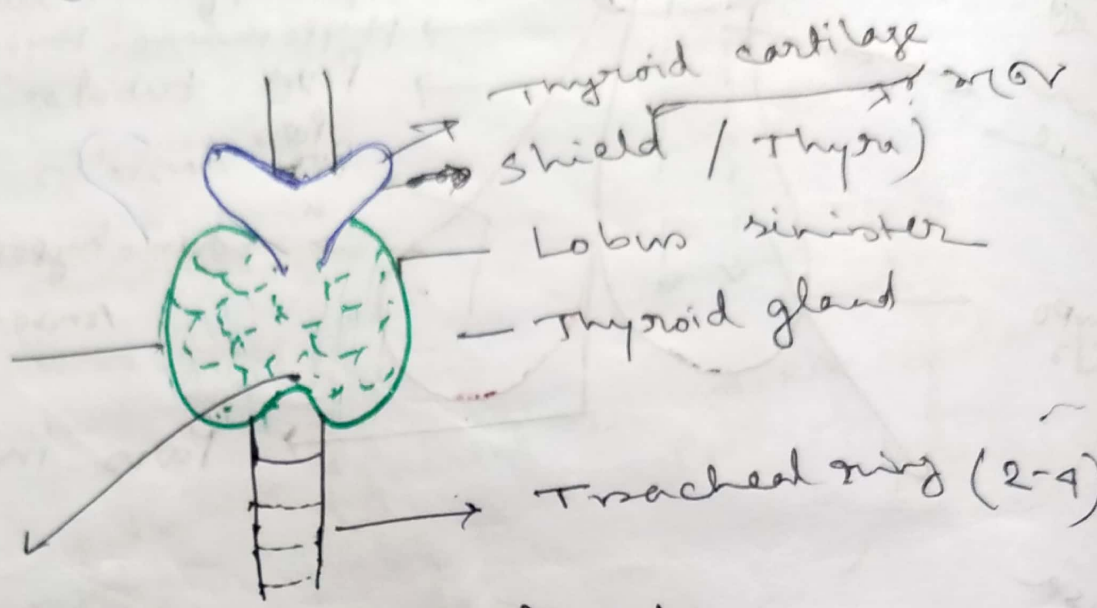 Thyroid cartilage
shield / Thyra)
Lobus sinister
Thyroid gland
Tracheal ring (2-4)